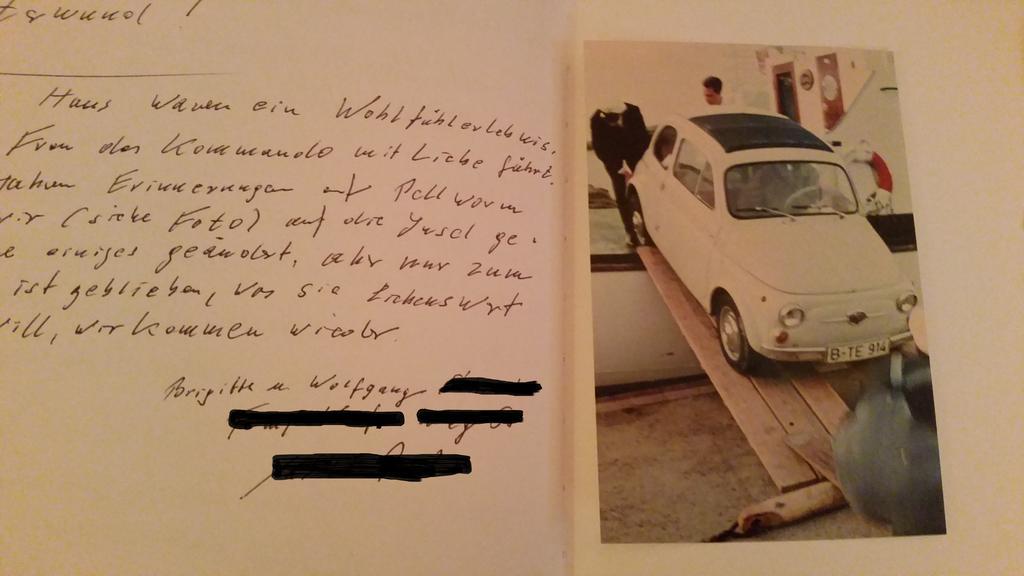 Haus waren ein Wohlfühlerlebnis.
Frau das Kommando mit Liebe führt.
Erinnerungen auf Pellworm
wir (siehe Foto) auf die Insel ge-
einiges geändert, aber nur zum
ist geblieben, was sie liebenswert
will, wir kommen wieder.
Brigitte u. Wolfgang
B-TE 914